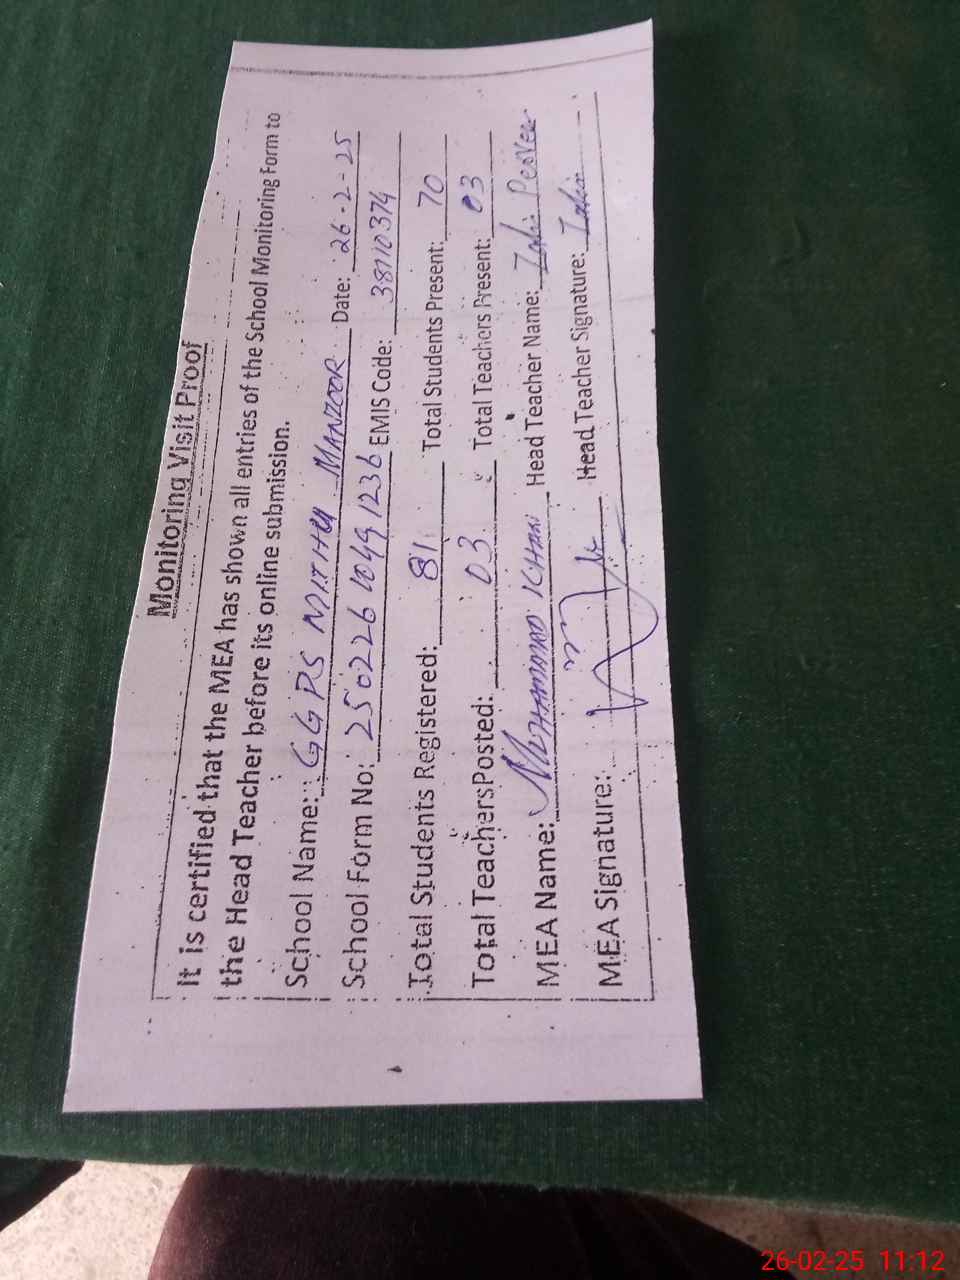 Monitoring Visit Proof
It is certified that the MEA has shown all entries of the School Monitoring Form to
the Head Teacher before its online submission.
School Name: GGPS MITHU MANZOOR Date: 26-2-25
School Form No: 250226 1049 1236 EMIS Code: 38110374
Total Students Registered: 81 Total Students Present: 70
Total Teachers Posted: 03 Total Teachers Present: 03
MEA Name: MUHAMMAD KHAN Head Teacher Name:
MEA Signature: Head Teacher Signature:
26-02-25 11:12